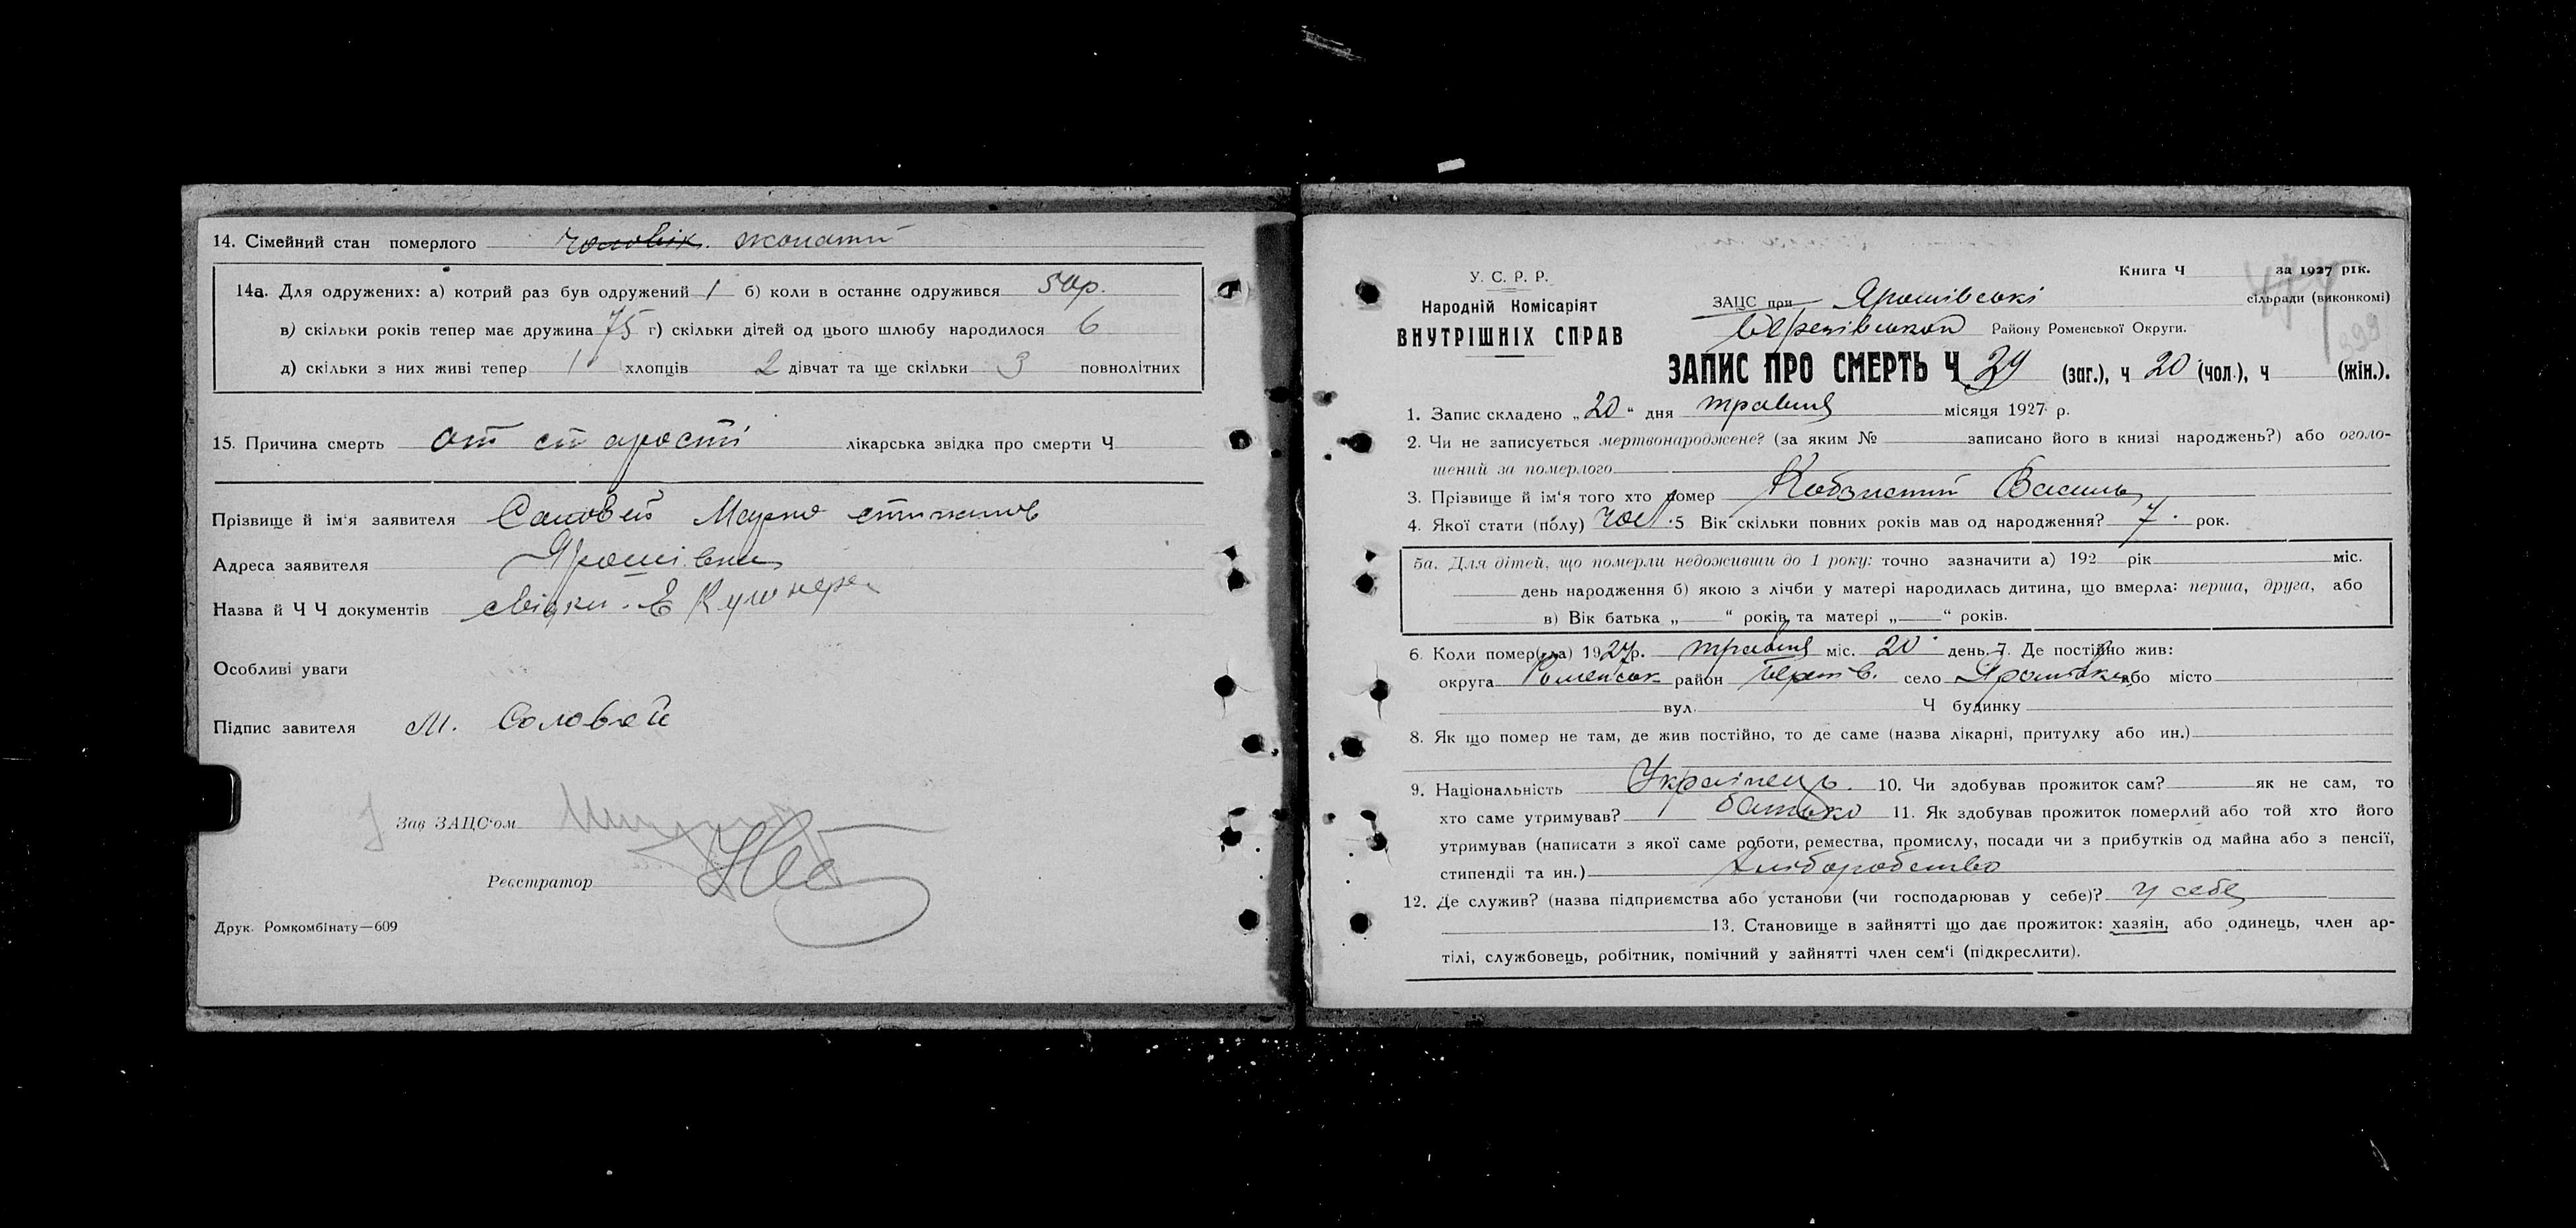 14. Сімейний стан померлого чоловік. жонатий
14а. Для одружених: а) котрий раз був одружений 1 б) коли в останнє одружився 50р.
в) скільки років тепер має дружина 75 г) скільки дітей од цього шлюбу народилося 6
д) скільки з них живі тепер 1 хлопців 2 дівчат та ще скільки 3 повнолітних
15. Причина смерть от старості лікарська звідка про смерти Ч
Прізвище й ім'я заявителя Соловей Марко
Адреса заявителя Ярошівка
Назва й Ч Ч документів свідки. Е Кушнер
Особливі уваги
Підпис завителя М. Соловей
Зав ЗАЦС'ом
Реєстратор
Друк. Ромкомбінату—609
Книга Ч за 1927 рік.
У. С. Р. Р.
Народній Комісаріят
ВНУТРІШНІХ СПРАВ
ЗАЦС при Ярошівські сільради (виконкомі)
Району Роменської Округи.
ЗАПИС ПРО СМЕРТЬ Ч 39 (заг.), ч 20 (чол.), ч (жін.).
1. Запис складено „20“ дня травня місяця 1927 р.
2. Чи не записується мертвонароджене? (за яким № записано його в книзі народжень?) або оголо-
шений за померлого
3. Прізвище й ім'я того хто помер Кобзистий Василь
4. Якої стати (полу) чол. 5 Вік скільки повних років мав од народження? 7. рок.
5а. Для дітей, що померли недоживши до 1 року: точно зазначити а) 192 рік міс.
день народження б) якою з лічби у матері народилась дитина, що вмерла: перша, друга, або
в) Вік батька „ “ років та матері „ “ років.
6. Коли помер(ла) 1927р. травня міс. 20 день 7. Де постійно жив:
округа Роменськ район село Ярошівка або місто
вул. Ч будинку
8. Як що помер не там, де жив постійно, то де саме (назва лікарні, притулку або ин.)
9. Національність Українець. 10. Чи здобував прожиток сам? як не сам, то
хто саме утримував? батько 11. Як здобував прожиток померлий або той хто його
утримував (написати з якої саме роботи, ремества, промислу, посади чи з прибутків од майна або з пенсії,
стипендії та ин.) хліборобство
12. Де служив? (назва підприємства або установи (чи господарював у себе)? у себе
13. Становище в зайнятті що дає прожиток: хазяїн, або одинець, член ар-
тілі, службовець, робітник, помічний у зайнятті член сем'і (підкреслити).